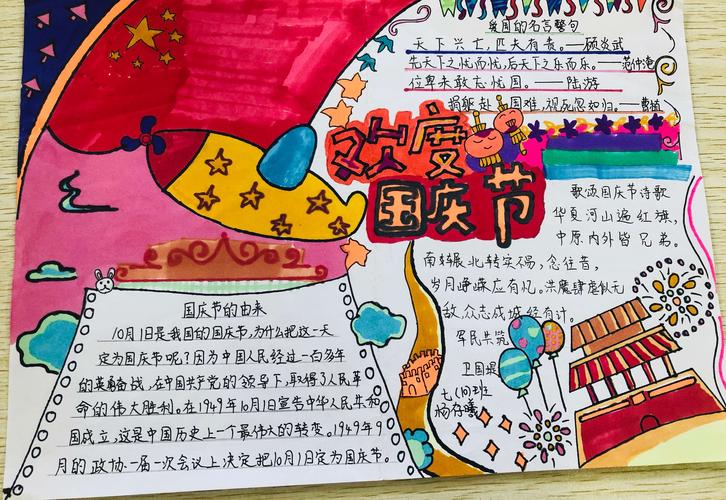 爱国的名言警句
天下兴亡，匹夫有责。——顾炎武
先天下之忧而忧，后天下之乐而乐。——范仲淹
位卑未敢忘忧国。——陆游
捐躯赴国难，视死忽如归。——曹植
欢度
国庆节
歌颂国庆节诗歌
华夏河山遍红旗，
中原内外皆兄弟。
南转展北转实不易，念往昔，
岁月峥嵘应有忆。洪魔肆虐似无
敌，众志成城经有计。
军民共筑
卫国
七(10)班
国庆节的由来
10月1日是我国的国庆节，为什么把这一天
定为国庆节呢？因为中国人民经过一百多年
的英勇奋战，在中国共产党的领导下，取得了人民革
命的伟大胜利。在1949年10月1日宣告中华人民共和
国成立，这是中国历史上一个最伟大的转变。1949年9
月的政协一届一次会议上决定把10月1日定为国庆节。